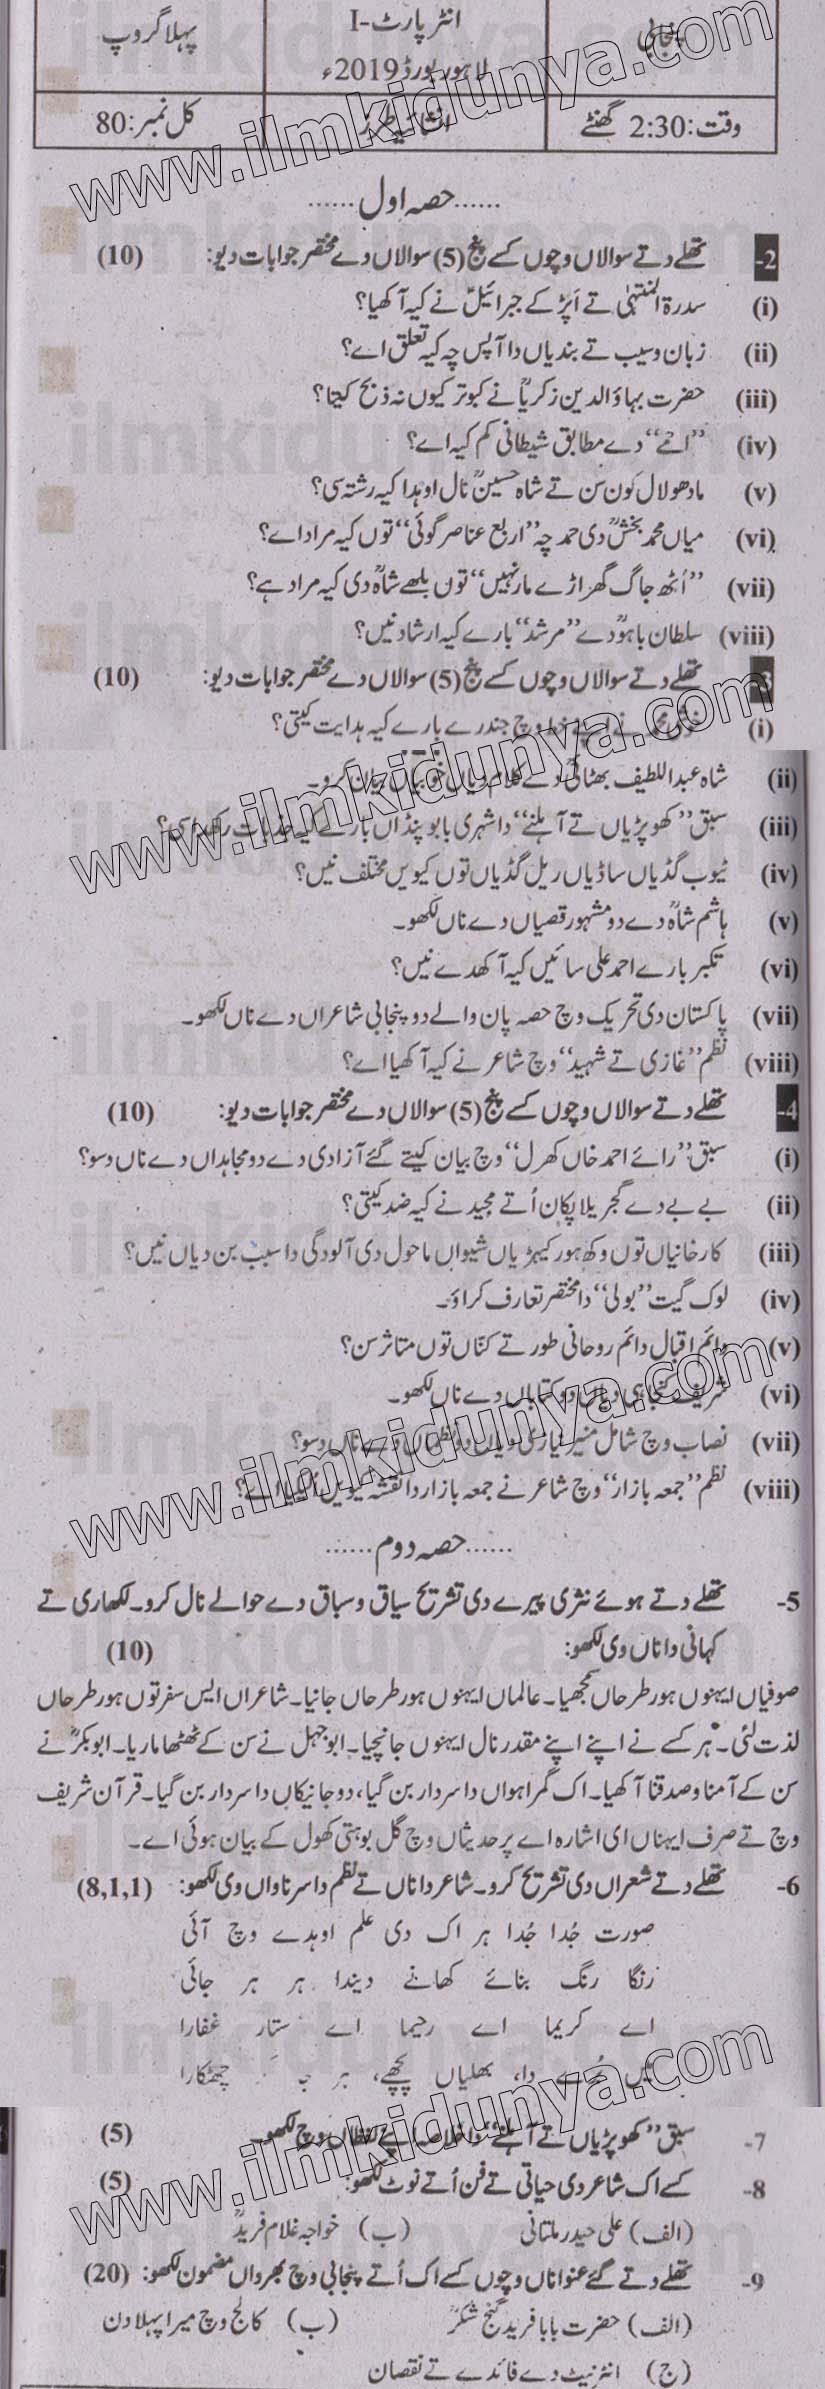 پنجابی
انٹر پارٹ-I
پہلا گروپ
لاہور بورڈ 2019ء
وقت: 2:30 گھنٹے
انشائیہ طرز
کل نمبر: 80
......حصہ اول......
2- تھلے دتے سوالاں وچوں کسے پنج (5) سوالاں دے مختصر جوابات دیو: (10)
(i) سدرۃ المنتہیٰ تے اَپڑ کے جبرائیلؑ نے کیہ آکھیا؟
(ii) زبان وسیب تے بندیاں دا آپس چہ کیہ تعلق اے؟
(iii) حضرت بہاؤ الدین زکریاؒ نے کبوتر کیوں نہ ذبح کیتا؟
(iv) ”اتے“ دے مطابق شیطانی کم کیہ اے؟
(v) مادھو لال کون سن تے شاہ حسینؒ نال اوہدا کیہ رشتہ سی؟
(vi) میاں محمد بخشؒ دی حمد چہ ”اربع عناصر گوئی“ توں کیہ مراد اے؟
(vii) ”اُٹھ جاگ گھراڑے مار نہیں“ توں بلھے شاہؒ دی کیہ مراد ہے؟
(viii) سلطان باہوؒ دے ”مرشد“ بارے کیہ ارشاد نیں؟
3- تھلے دتے سوالاں وچوں کسے پنج (5) سوالاں دے مختصر جوابات دیو: (10)
(i) غوث محمد نے اپنے خط وچ جندرے بارے کیہ ہدایت کیتی؟
(ii) شاہ عبداللطیف بھٹائیؒ دے کلام دیاں خوبیاں بیان کرو۔
(iii) سبق ”کھوپڑیاں تے آہلنے“ دا شہری بابو پنڈاں بارے کیہ جذبات رکھدا سی؟
(iv) ٹیوب گڈیاں ساڈیاں ریل گڈیاں توں کیویں مختلف نیں؟
(v) ہاشم شاہؒ دے دو مشہور قصیاں دے ناں لکھو۔
(vi) تکبر بارے احمد علی سائیں کیہ آکھدے نیں؟
(vii) پاکستان دی تحریک وچ حصہ پان والے دو پنجابی شاعراں دے ناں لکھو۔
(viii) نظم ”غازی تے شہید“ وچ شاعر نے کیہ آکھیا اے؟
4- تھلے دتے سوالاں وچوں کسے پنج (5) سوالاں دے مختصر جوابات دیو: (10)
(i) سبق ”رائے احمد خاں کھرل“ وچ بیان کیتے گئے آزادی دے دو مجاہداں دے ناں دسو؟
(ii) بے بے دے گجریلا پکان اُتے مجید نے کیہ ضد کیتی؟
(iii) کارخانیاں توں وکھ ہور کیہڑیاں شیواں ماحول دی آلودگی دا سبب بن دیاں نیں؟
(iv) لوک گیت ”بولی“ دا مختصر تعارف کراؤ۔
(v) دائم اقبال دائم روحانی طور تے کنّاں توں متاثر سن؟
(vi) شریف کنجاہی دیاں دو کتاباں دے ناں لکھو۔
(vii) نصاب وچ شامل منیر نیازی دیاں دو نظماں دے ناں دسو؟
(viii) نظم ”جمعہ بازار“ وچ شاعر نے جمعہ بازار دا نقشہ کیویں اُلیکیا اے؟
......حصہ دوم......
5- تھلے دتے ہوئے نثری پیرے دی تشریح سیاق و سباق دے حوالے نال کرو۔ لکھاری تے
کہانی دا ناں وی لکھو: (10)
صوفیاں ایہنوں ہور طرحاں سمجھیا۔ عالماں ایہنوں ہور طرحاں جانیا۔ شاعراں ایس سفر توں ہور طرحاں
لذت لئی۔ ہر کسے نے اپنے اپنے مقدر نال ایہنوں جانچیا۔ ابو جہل نے سن کے ٹھٹھا ماریا۔ ابو بکرؓ نے
سن کے آمنا و صدقنا آکھیا۔ اک گمراہواں دا سردار بن گیا، دو جا نیکاں دا سردار بن گیا۔ قرآن شریف
وچ تے صرف ایہناں ای اشارہ اے پر حدیثاں وچ گل بوہتی کھول کے بیان ہوئی اے۔
6- تھلے دتے شعراں دی تشریح کرو۔ شاعر دا ناں تے نظم دا سرناواں وی لکھو: (8,1,1)
صورت جُدا جُدا ہر اک دی علم اوہدے وچ آئی
رنگا رنگ بنائے کھانے دیندا ہر ہر جائی
اے کریما اے رحیما اے ستار غفارا
میں بُرے دا، بھلیاں پچھے، ہر چھٹکارا
7- سبق ”کھوپڑیاں تے آہلنے“ دا خلاصہ اپنے لفظاں وچ لکھو۔ (5)
8- کسے اک شاعر دی حیاتی تے فن اُتے نوٹ لکھو: (5)
(الف) علی حیدر ملتانی (ب) خواجہ غلام فریدؒ
9- تھلے دتے گئے عنواناں وچوں کسے اک اُتے پنجابی وچ بھرواں مضمون لکھو: (20)
(الف) حضرت بابا فرید گنج شکرؒ (ب) کالج وچ میرا پہلا دن
(ج) انٹرنیٹ دے فائدے تے نقصان
www.ilmkidunya.com
www.ilmkidunya.com
www.ilmkidunya.com
www.ilmkidunya.com